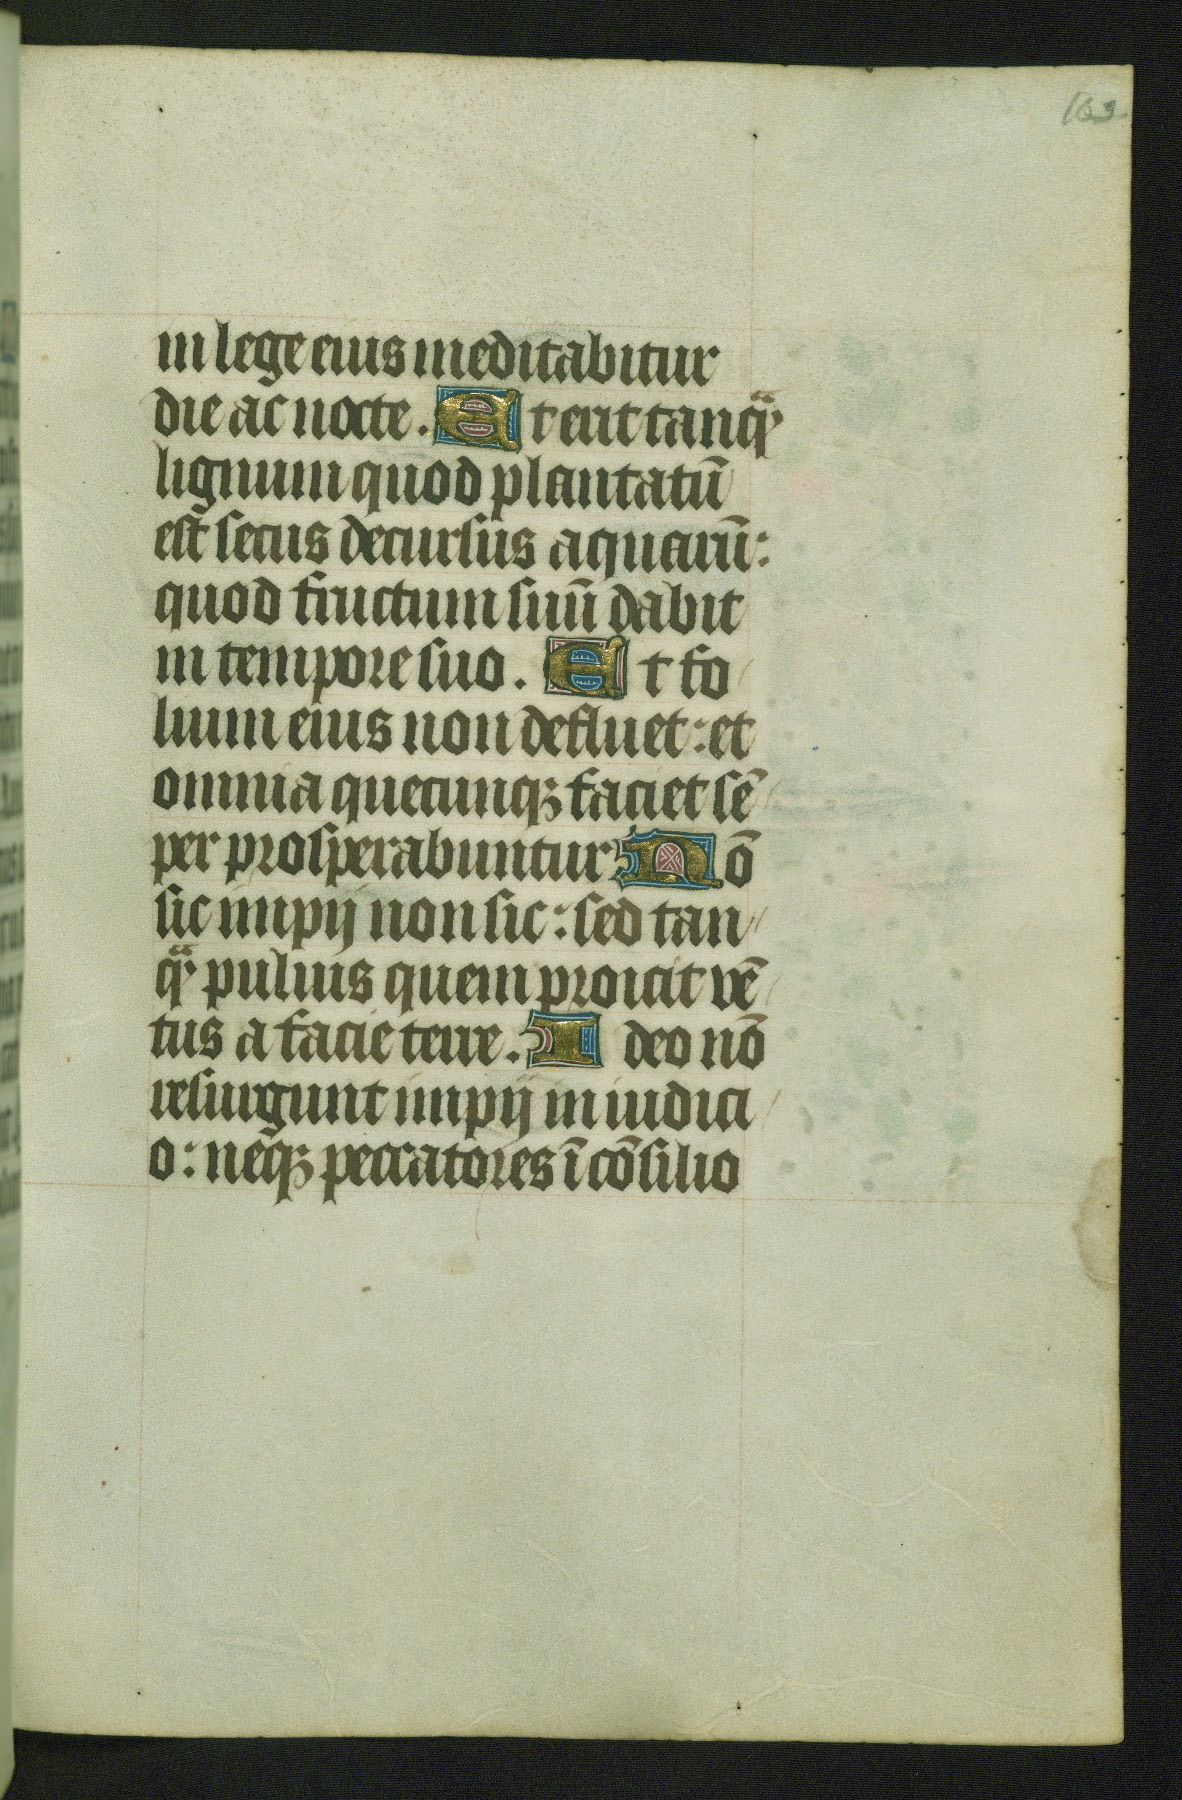 163.
in lege eius meditabitur
die ac nocte. Et erit tanqᷓ
lignum quod plantatū
est secus decursus aquarū:
quod fructum suū dabit
in tempore suo. Et fo
lium eius non defluet: et
omnia quecunqꝫ faciet sē
per prosperabuntur Nō
sic impij non sic: sed tan
qᷓ puluis quem proicit vē
tus a facie terre. Ideo nō
resurgunt impij in iudici
o: neqꝫ peccatores ī cōsilio